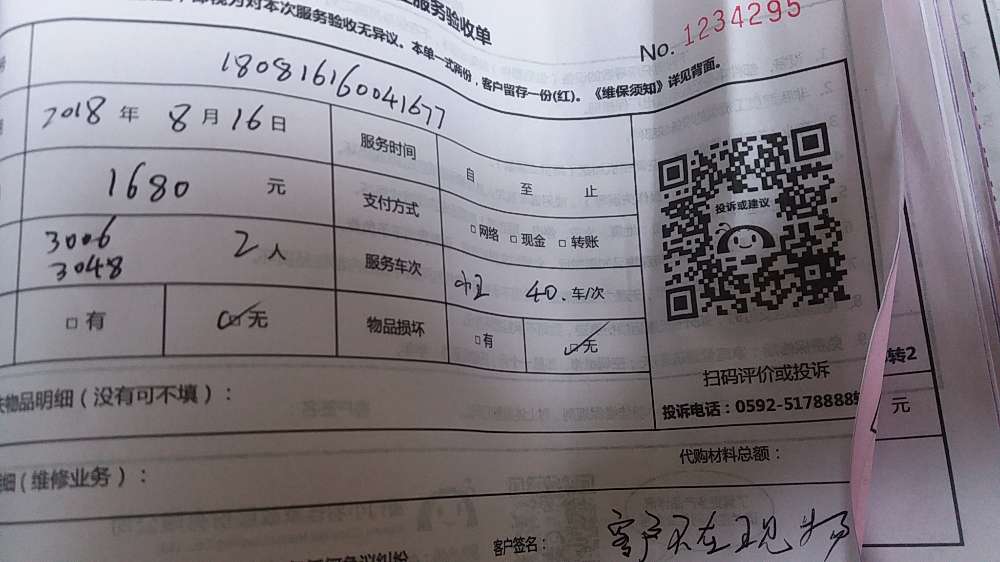 服务验收单
No. 1234295
即视为对本次服务验收无异议。本单一式两份，客户留存一份(红)。《维保须知》详见背面。
180816160041677
2018 年 8 月 16 日 服务时间 自 至 止
1680 元 支付方式 □网络 □现金 □转账
3006
3048 2 人 服务车次 40. 车/次
□ 有 □ 无 物品损坏 □有 □无
投诉或建议
扫码评价或投诉
投诉电话：0592-5178888转2
物品明细（没有可不填）：
元
细（维修业务）：
代购材料总额：
客户签名： 客户不在现场